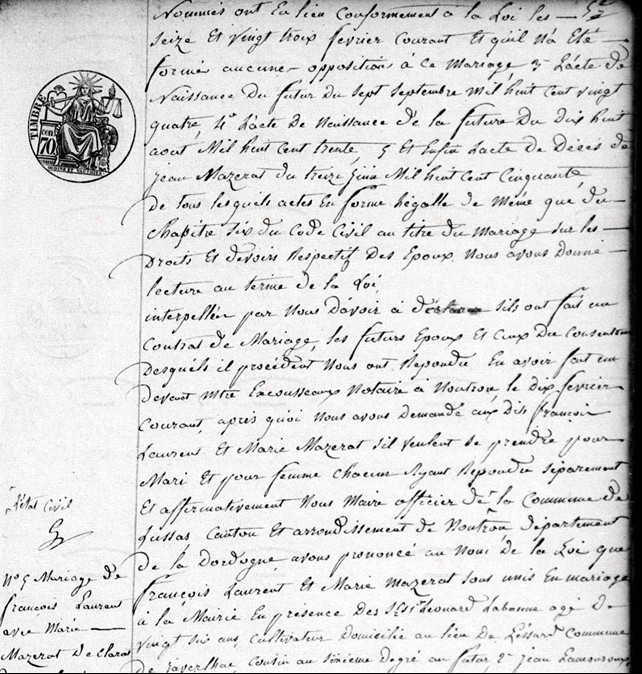 Nommés ont eu lieu Conformement à la Loi les
seize et vingt trois février courant et qu'il n'a été
formés aucune opposition à ce Mariage 3° L'acte de
Naissance du futur du sept septembre mil huit cent vingt
quatre, 4° L'acte de Naissance de la future du dix huit
aout mil huit cent trente, 5 et enfin L'acte de Décès de
jean Mazerat du treize juin mil huit cent cinquante
de tous lesquels actes en forme légalle de même que du
chapitre six du Code Civil au titre du Mariage sur les
Droits et devoirs Respectif des Epoux. Nous avons donné
lecture au terme de la Loi
interpellée par Nous d'avoir à s'ils ont fait un
Contrat de Mariage, les futurs Epoux et Ceux du Consentement
desquels il procèdent Nous ont Repondu en avoir fait un
devant Mtre Notaire à Nontron le dix février
courant, après quoi Nous avons Demandé aux dits françois
Laurent et Marie Mazerat s'il veulent se prendre pour
Mari et pour femme chacun Ayant Repondu séparement
et affirmativement Nous Maire officier de la Commune de
Lussas Canton et arrondissement de Nontron département
de la Dordogne avons prononcé au Nom de la Loi que
françois Laurent et Marie Mazerat sous unis en mariage
à la Mairie en présence des Léonard Labonne agé de
vingt six ans, cultivateur Domicilié au lieu de Commune
de javerlhac, cousin au sixieme degré au futur, 2° jean Lamouroux
TIMBRE
70
L'état Civil
N° 5 Mariage de
françois Laurent
avec Marie
Mazerat De Claras